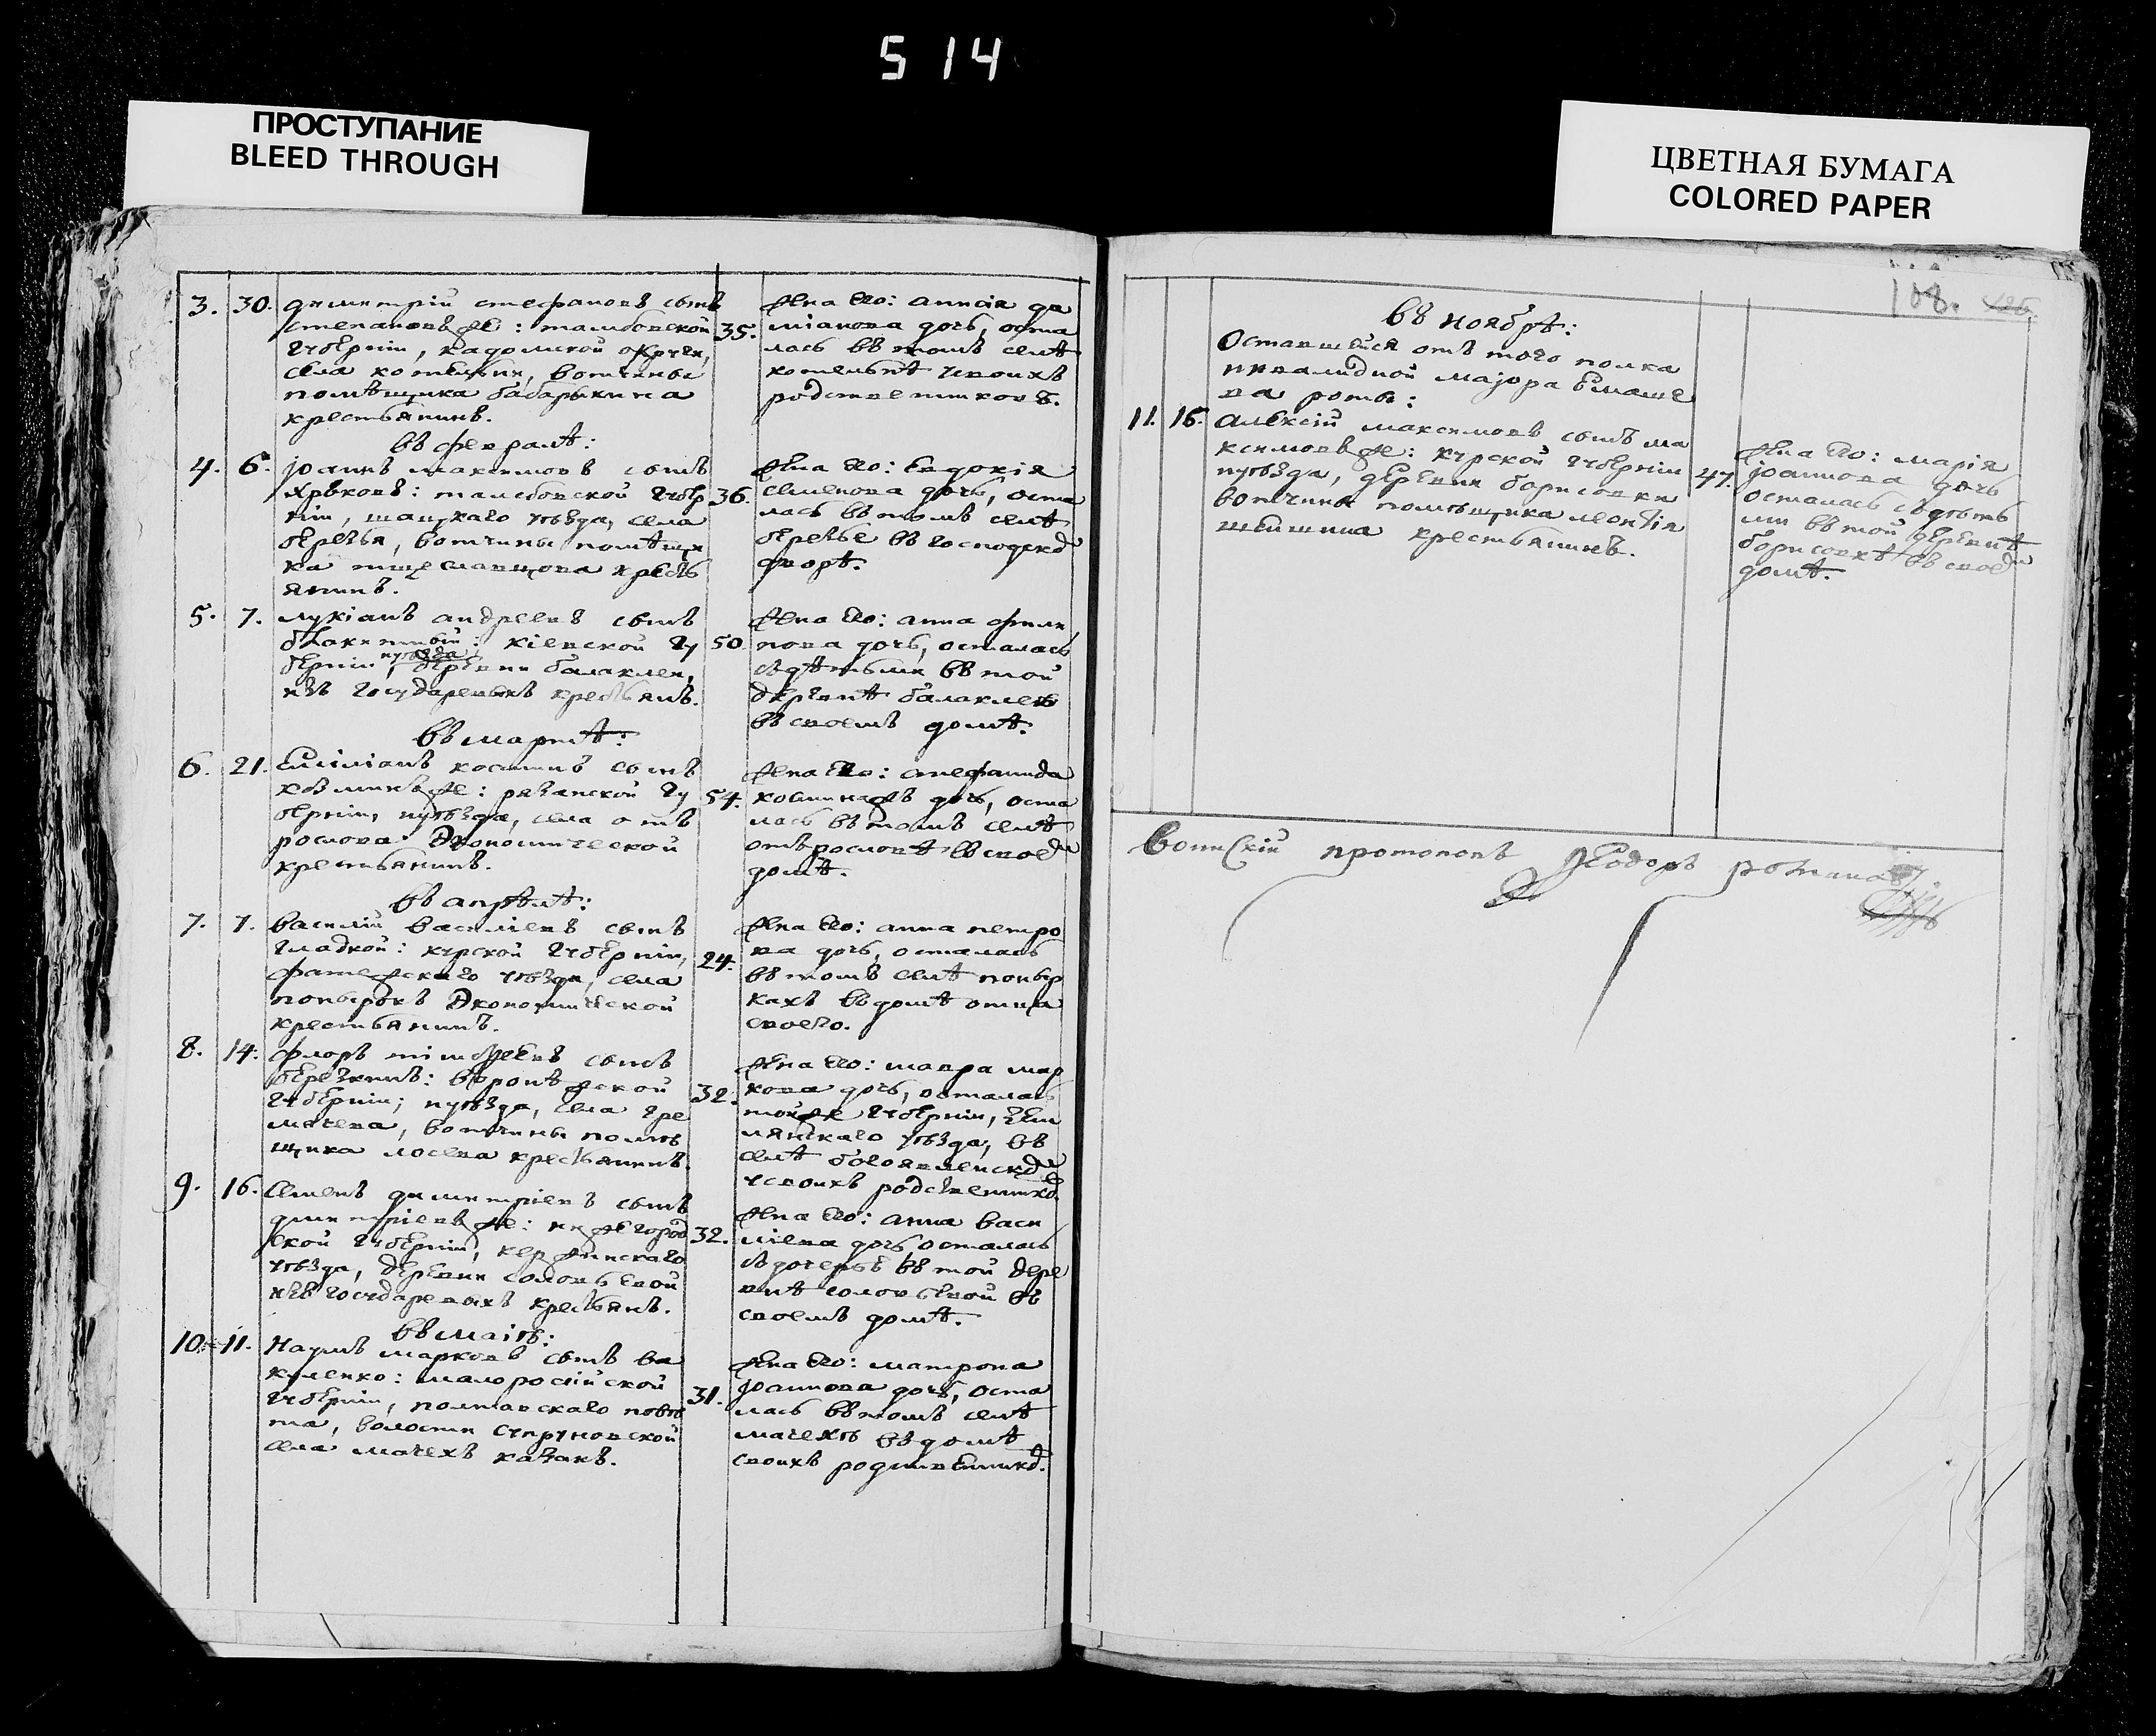 514
ПРОСТУПАНИЕ
BLEED THROUGH
ЦВЕТНАЯ БУМАГА
COLORED PAPER
3. 30. димитрій стефановъ сынъ
степановъ же: тамбовской
губерніи, кадомской округи,
села котельни, вотчины
помѣщика бабарыкина
крестьянинъ.
35. Жена Его: анисія да
міанова дочь, оста
лась въ томъ селѣ
котельнѣ у своихъ
родственниковъ.
въ февралѣ:
4. 6. іоаннъ максимовъ сынъ
хрѣковъ: тамбовской губер
ніи, шацкаго уѣзда, села
березья, вотчины помѣщи
ка тищеславцова кресть
янинъ.
36. Жена Его: Евдокія
семенова дочь, оста
лась въ томъ селѣ
березье въ господско
дворѣ.
5. 7. лукіанъ андреевъ сынъ
блакитный: кіевской гу
берніи, иуѣзда деревни балаклеи,
изъ государевыхъ крестьянъ.
50. Жена Его: анна филип
пова дочь, осталась
съ дѣтьми въ той
деревнѣ балаклеѣ
въ своемъ домѣ.
въ мартѣ:
6. 21. Емиліанъ косминъ сынъ
козминъ же: рязанской гу
берніи, иуѣзда, села отъ
рослова Экономической
крестьянинъ.
54. Жена Его: стефанида
косминова дочь, оста
лась въ томъ селѣ
отърословѣ въ свое
домѣ.
въ апрѣлѣ:
7. 7. Василій васильевъ сынъ
гладкой: курской губерніи,
фатежскаго уѣзда, села
понырокъ Экономической
крестьянинъ.
24. Жена Его: анна петро
ва дочь, осталась
въ томъ селѣ поныр
кахъ въ домѣ отца
своего.
8. 14. флоръ тімоѳеевъ сынъ
березкинъ: воронѣжской
губерніи, иуѣзда, села гре
мячева, вотчины помѣ
щика лосева крестьянинъ.
32. Жена Его: мавра мар
кова дочь, осталась
тойже губерніи, зем
лянскаго уѣзда, въ
селѣ богоявленско
у своихъ родственнико
9. 16. Семенъ димитріевъ сынъ
дмитріевъ же: нижегород
ской губерніи, кержинскаго
уѣзда, деревни соловьевой
изъ государевыхъ крестьянъ.
32. Жена Его: анна васи
ліева дочь осталась
съ дочерью въ той дере
внѣ соловьевой въ
своемъ домѣ.
въ маіѣ:
10. 11. Наумъ марковъ сынъ ва
куленко: малоросійской
губерніи, полтавскаго повѣ
та, волости супруновской
села мачехъ казакъ.
31. Жена Его: матрона
іоаннова дочь, оста
лась въ томъ селѣ
мачехѣ въ домѣ
своихъ родственнико.
108.
въ ноябрѣ:
Оставшейся отъ того полка
инвалидной маіора Елаше
ва роты:
11. 16. алексій максимовъ сынъ ма
ксимовъ же: курской губерніи
иуѣзда, деревни борисовки
вотчины помѣщика леонтія
шишина крестьянинъ.
47. Жена Его: марія
іоаннова дочь
осталась съ дѣть
ми въ той деревнѣ
борисовкѣ въ свое
домѣ.
воинскій протопопъ Ѳеодоръ романов